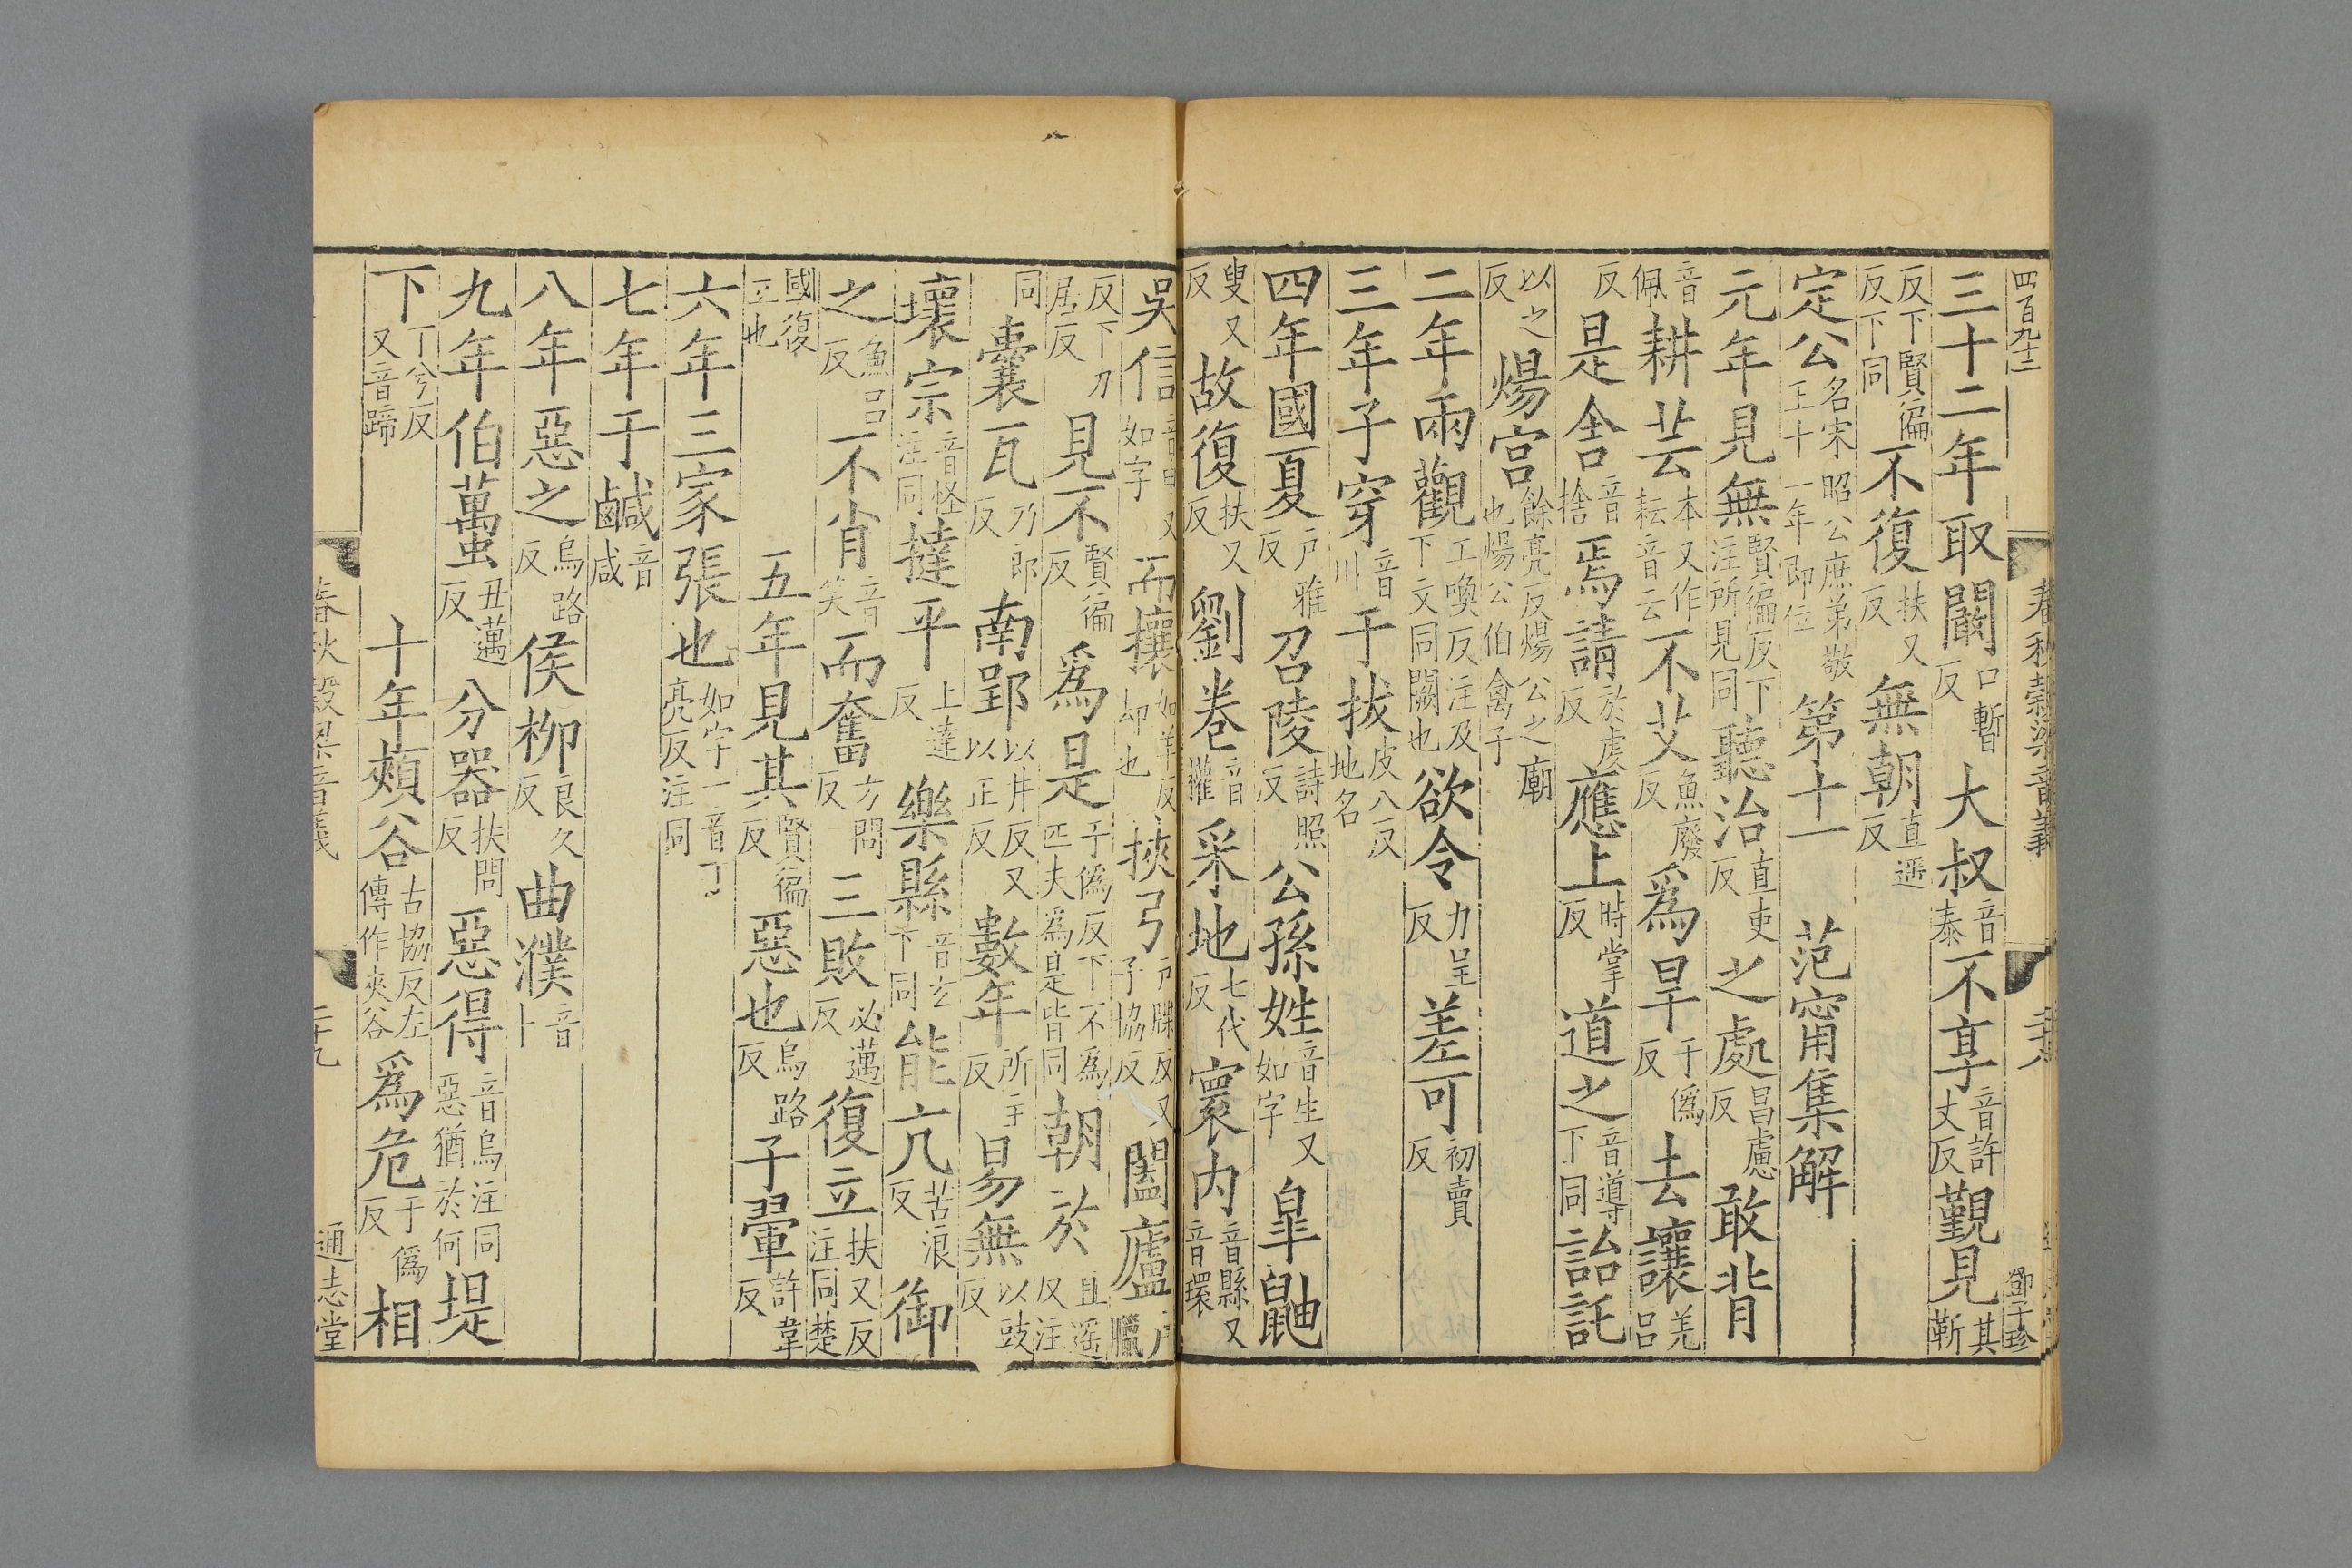 四百九十二
春秋穀梁音義
鄧子珍
三十二年取闞口暫反大叔音泰不享音許丈反覲見其靳
反下賢徧反下同不復扶又反無朝直遥反
定公名宋昭公庶弟敬王十一年即位第十一 范甯集解
元年見無賢徧反下注所見同聽治直吏反之處昌慮反敢背
音佩耕芸本又作耘音云不艾魚廢反爲旱于僞反去讓羌呂
反是舍音捨焉請於虔反應上時掌反道之音導下同詒託
以之反煬宮餘亮反煬公之廟也煬公伯禽子
二年兩觀工喚反注及下文同闕也欲令力呈反差可初賣反
三年子穿音川于拔皮八反地名
四年國夏戶雅反召陵詩照反公孫姓音生又如字皐鼬
叟又反故復扶又反劉卷音權采地七代反寰内音縣又音環
吳信音申又如字而攘如羊反却也挾弓戶牒反又子協反闔廬戶臘
反下力居反見不賢徧反爲是于僞反下不爲匹夫爲是皆同朝於直遥反注
同囊瓦乃郎反南郢以井反又以正反數年所主反易無以豉反
壞宗音怪注同撻平上達反樂縣音玄下同能亢苦浪反御
之魚呂反不肖音笑而奮方問反三敗必邁反復立扶又反注同楚
國復立也五年見其賢徧反惡也烏路反子翬許韋反
六年三家張也如字一音丁亮反注同
七年于鹹音咸
八年惡之烏路反侯柳良久反曲濮音卜
九年伯蠆丑邁反分器扶問反惡得音烏注同惡猶於何堤
下丁兮反又音蹄十年頰谷古協反左傳作夾谷爲危于僞反相
春秋穀梁音義
二十九
通志堂